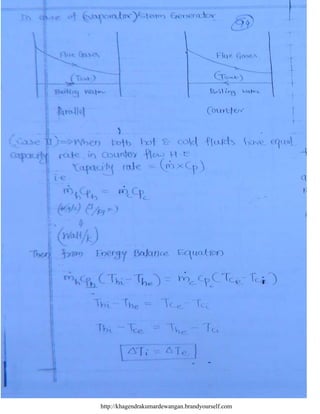 In case of (Evaporator)/Steam Generator
59
Flue Gases
Flue Gases
(Tsat)
(Tsat)
Boiling Water
Boiling Water
Parallel
Counter
(Case II) => When both hot & cold fluids have equal
capacity rate in counter flow H.E
Capacity rate = (ṁ×Cp)
i.e
ṁh Cph = ṁc Cpc
(Watt/k)
Then from Energy Balance Equation
ṁh Cph (Thi - The) = ṁc Cpc (Tce - Tci)
Thi - The = Tce - Tci
Thi - Tce = The - Tci
ΔTi = ΔTe
http://khagendrakumardewangan.brandyourself.com